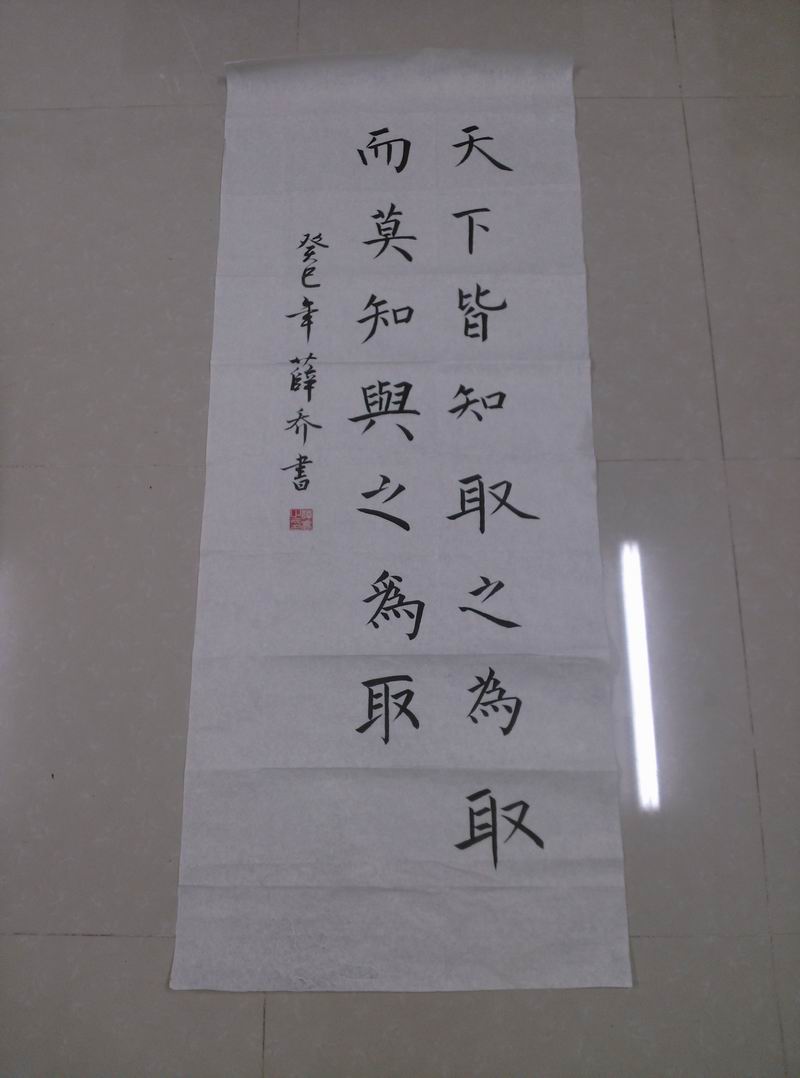 天下皆知取之為取
而莫知與之爲取
癸巳年薛乔書